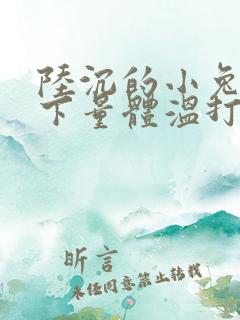 陸沉的小兔
下量體溫打
昕言
未任同意禁止转载